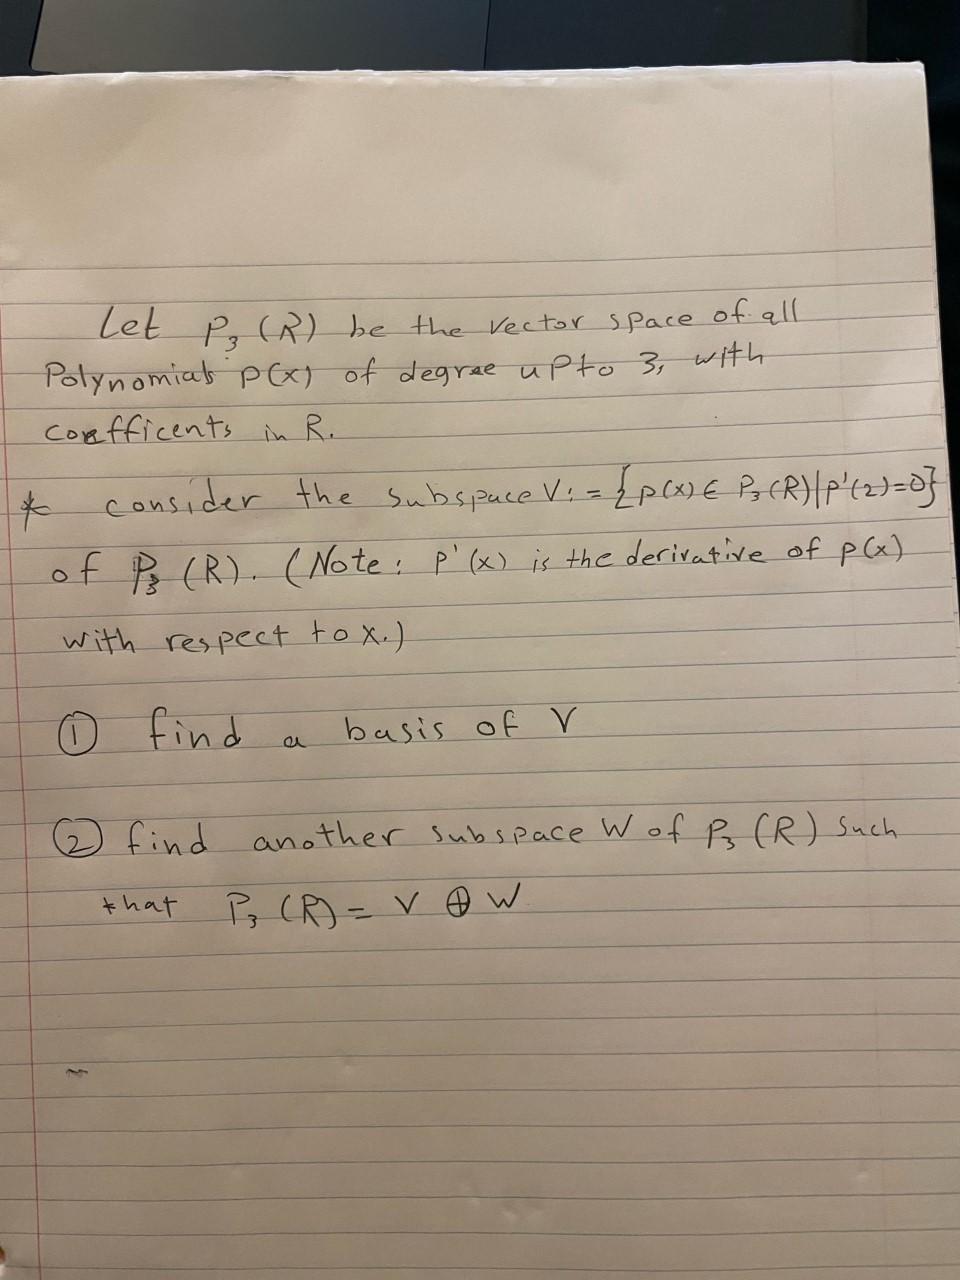 Let P₃ (R) be the vector space of all
Polynomials p(x) of degree upto 3, with
coefficents in R.
* consider the subspace V: = {p(x) ∈ P₃ (R) | p'(2)=0}
of P₃ (R). (Note: p'(x) is the derivative of p(x)
with respect to x.)
① find a basis of V
② find another subspace W of P₃ (R) such
that P₃ (R) = V ⊕ W